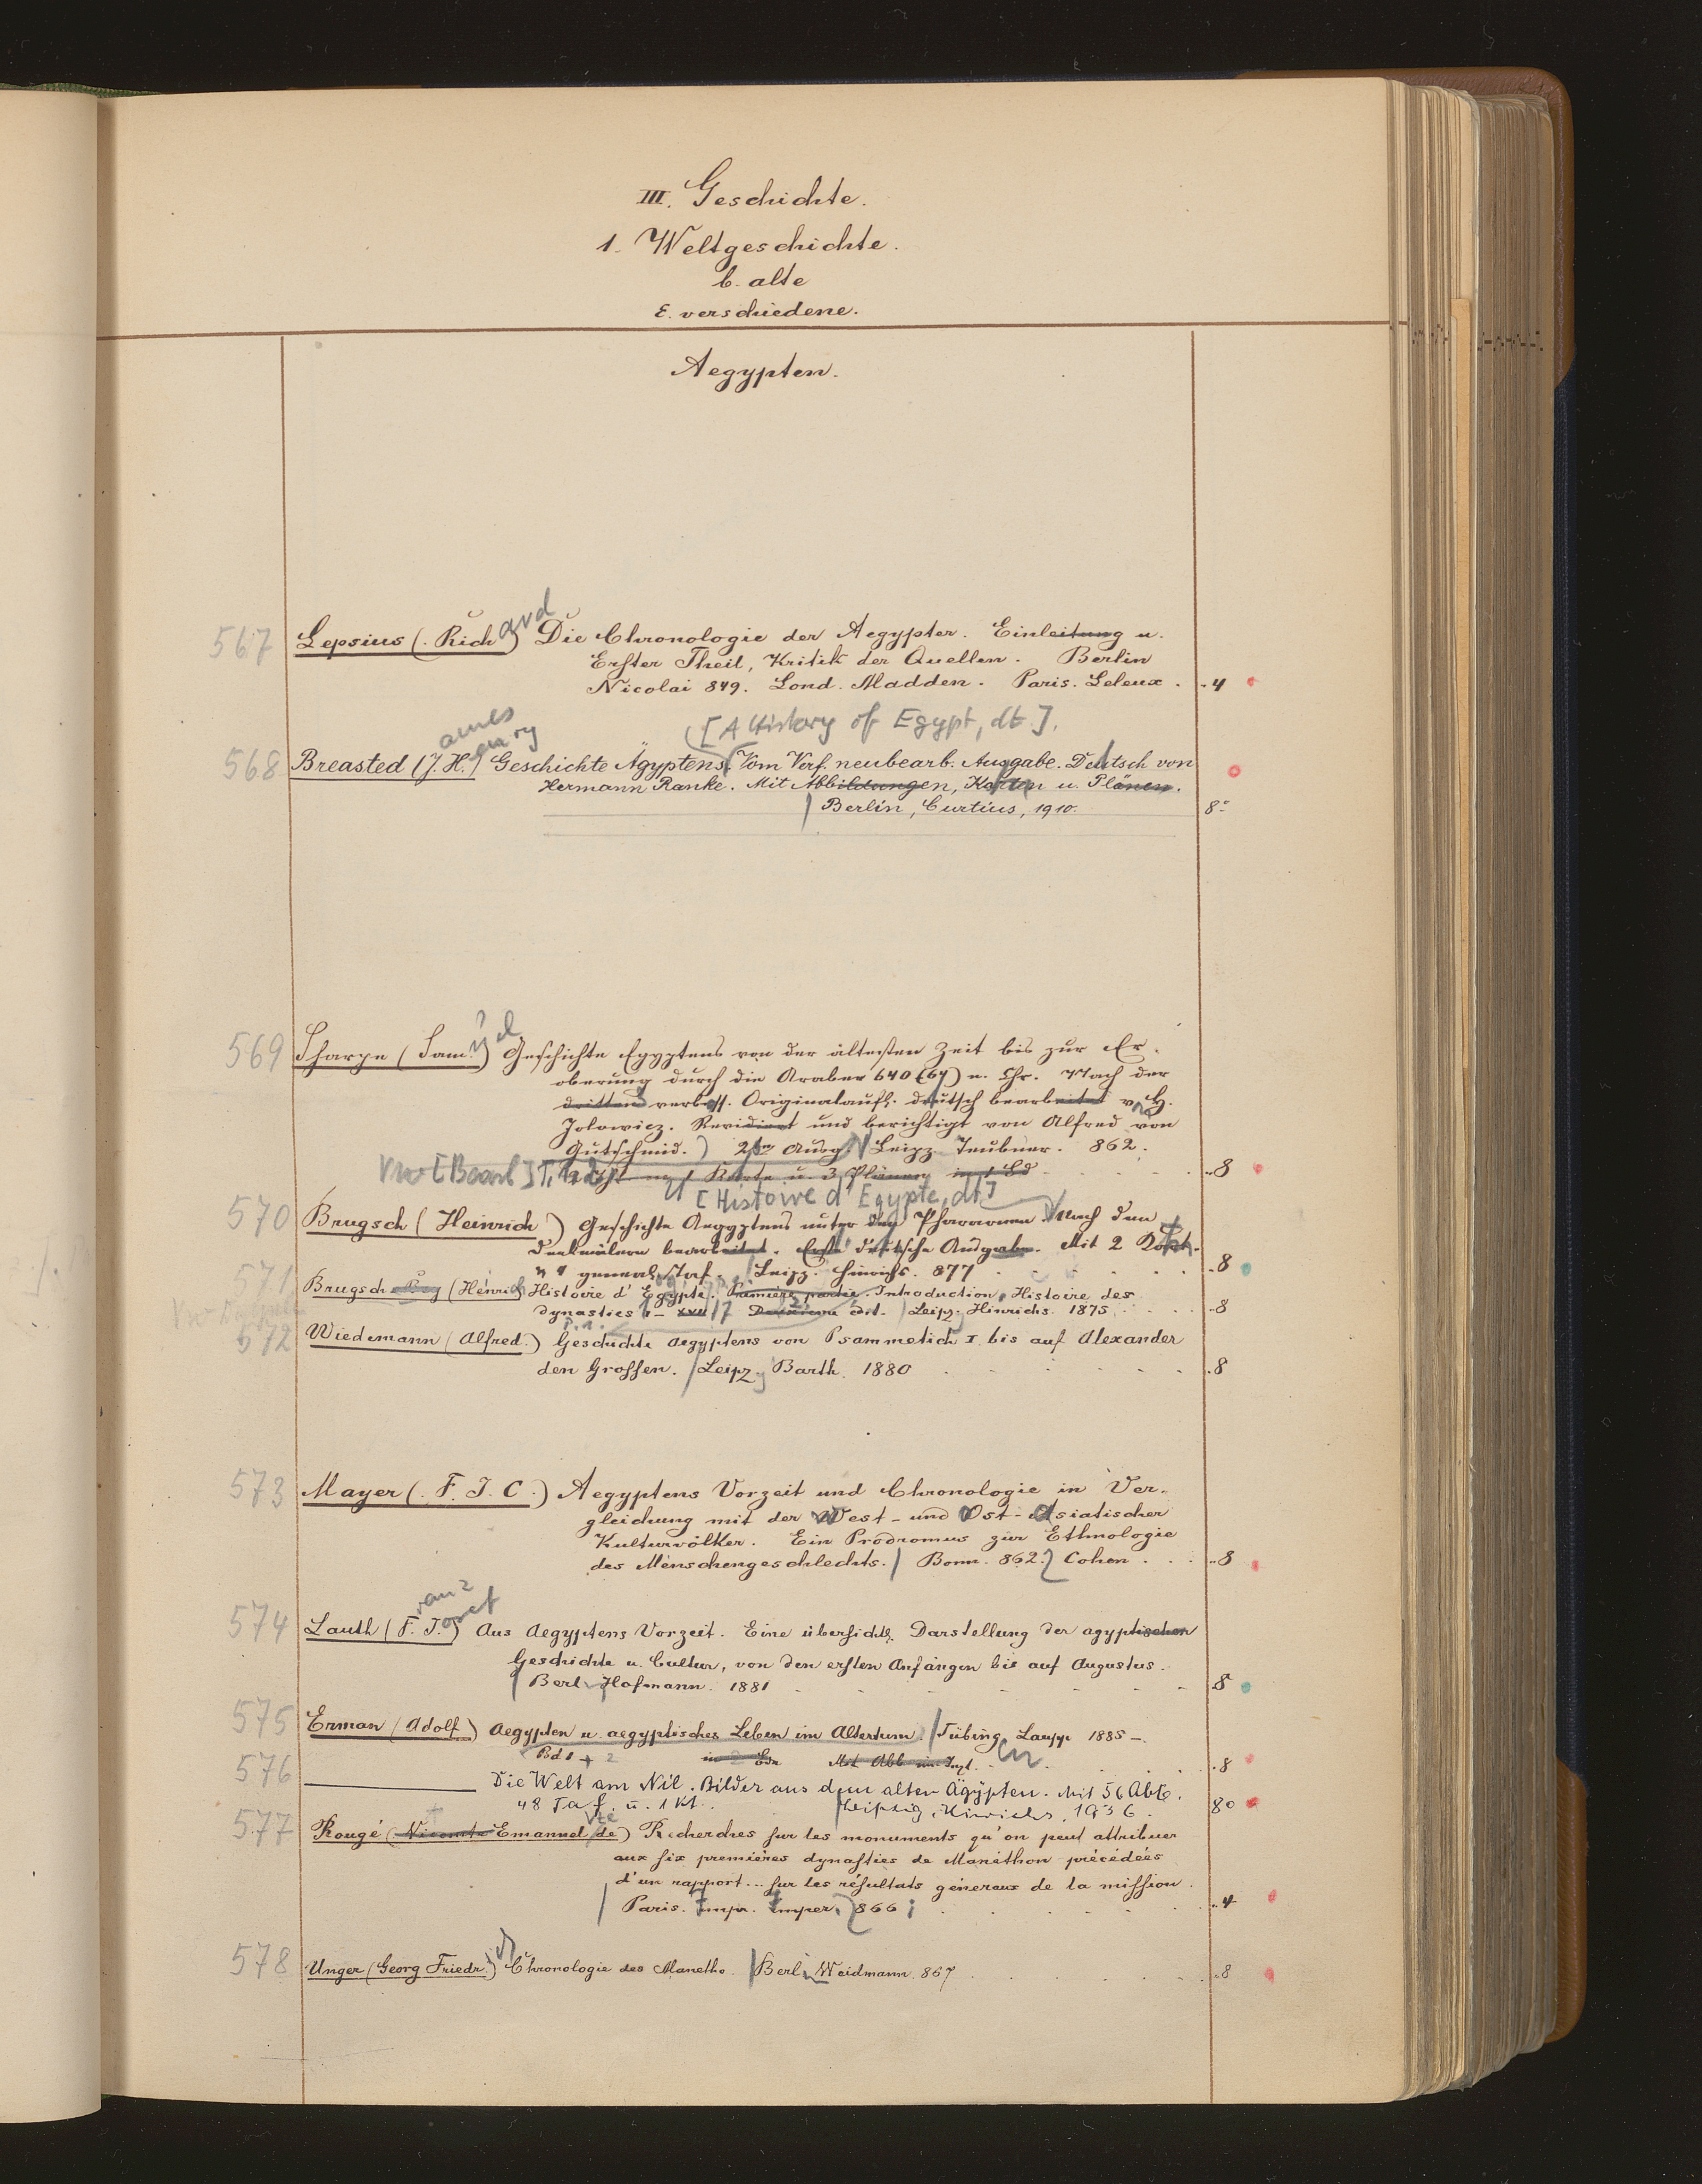 III. Geschichte.
1. Weltgeschichte.
b. alte
ε. verschiedene.
Aegypten.
567 Lepsius (. Rich ard) Die Chronologie der Aegypter. Einleitung u.
Erster Theil, Kritik der Quellen. Berlin
Nicolai 849. Lond. Madden. Paris. Leleux. ..4
[A History of Egypt, dt.].
ames enry
568 Breasted (J. H.) Geschichte Ägyptens. Vom Verf. neubearb. Ausgabe. Deutsch von
Hermann Ranke. Mit Abbildungen, Karten u. Plänen.
Berlin, Curtius, 1910. 8°
569 Sharpe (Sam. uel) Geschichte Egyptens von der ältesten Zeit bis zur Er-
oberung durch die Araber 640 (641) n. Chr. Nach der
dritten verbess. Originalaufl. deutsch bearbeitet v. H.
Jolowicz. Revidiert und berichtigt von Alfred von
Gutschmid.) 2te Ausg. Leipz. Teubner. 862.
mit 1 Karte u. 3 Plänen in 1 Bd ..8
[Histoire d'Egypte, dt.]
570 Brugsch (Heinrich) Geschichte Aegyptens unter den Pharaonen. Nach den
Denkmälern bearbeitet. Erste deutsche Ausgabe. Mit 2 Kart.
u 4 geneal. Taf. Leipz. Hinrichs. 877 ..8
571 Brugsch-Bey (Henri) Histoire d'Egypte. Première partie. Introduction, Histoire des
dynasties I-XVII 17 Deuxième édit. Leipz. Hinrichs. 1875 ..8
572 Wiedemann (Alfred.) Geschichte Aegyptens von Psammetich I. bis auf Alexander
den Grossen. Leipz. Barth. 1880 ..8
573 Mayer (. F. J. C.) Aegyptens Vorzeit und Chronologie in Ver-
gleichung mit der West- und Ost-Asiatischer
Kulturvölker. Ein Prodromus zur Ethnologie
des Menschengeschlechts. Bonn. 862. Cohen ..8
ranz
574 Lauth (F. J. osef) Aus Aegyptens Vorzeit. Eine übersichtl. Darstellung der ägyptischen
Geschichte u. Cultur, von den ersten Anfängen bis auf Augustus.
Berl. Hofmann. 1881 8
575 Erman (Adolf) Aegypten u. aegyptisches Leben im Altertum. Tübing en Laupp 1885 -.
Bd 1 + 2 in 2 Bdn Mit Abb. im Text. ..8
576 Die Welt am Nil. Bilder aus dem alten Ägypten. Mit 56 Abb.
48 Taf. u. 1 Kt. Leipzig, Hinrichs, 1936. 8°
577 Rougé (Vicomte Emanuel de) Recherches sur les monuments qu'on peut attribuer
aux six premières dynasties de Manéthon précédées
d'un rapport... sur les résultats généraux de la mission.
Paris. Impr. Imper. 866; ..4
578 Unger (Georg Friedr.) Chronologie des Manetho. Berl. Weidmann 867 ..8